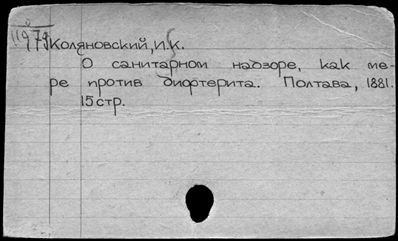 11979
Коляновский, И.К.
О санитарном надзоре, как ме-
ре против дифтерита. Полтава, 1881.
15 стр.